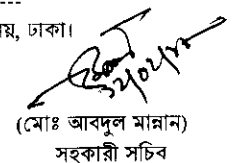 য়, ঢাকা।
(মোঃ আবদুল মান্নান)
সহকারী সচিব